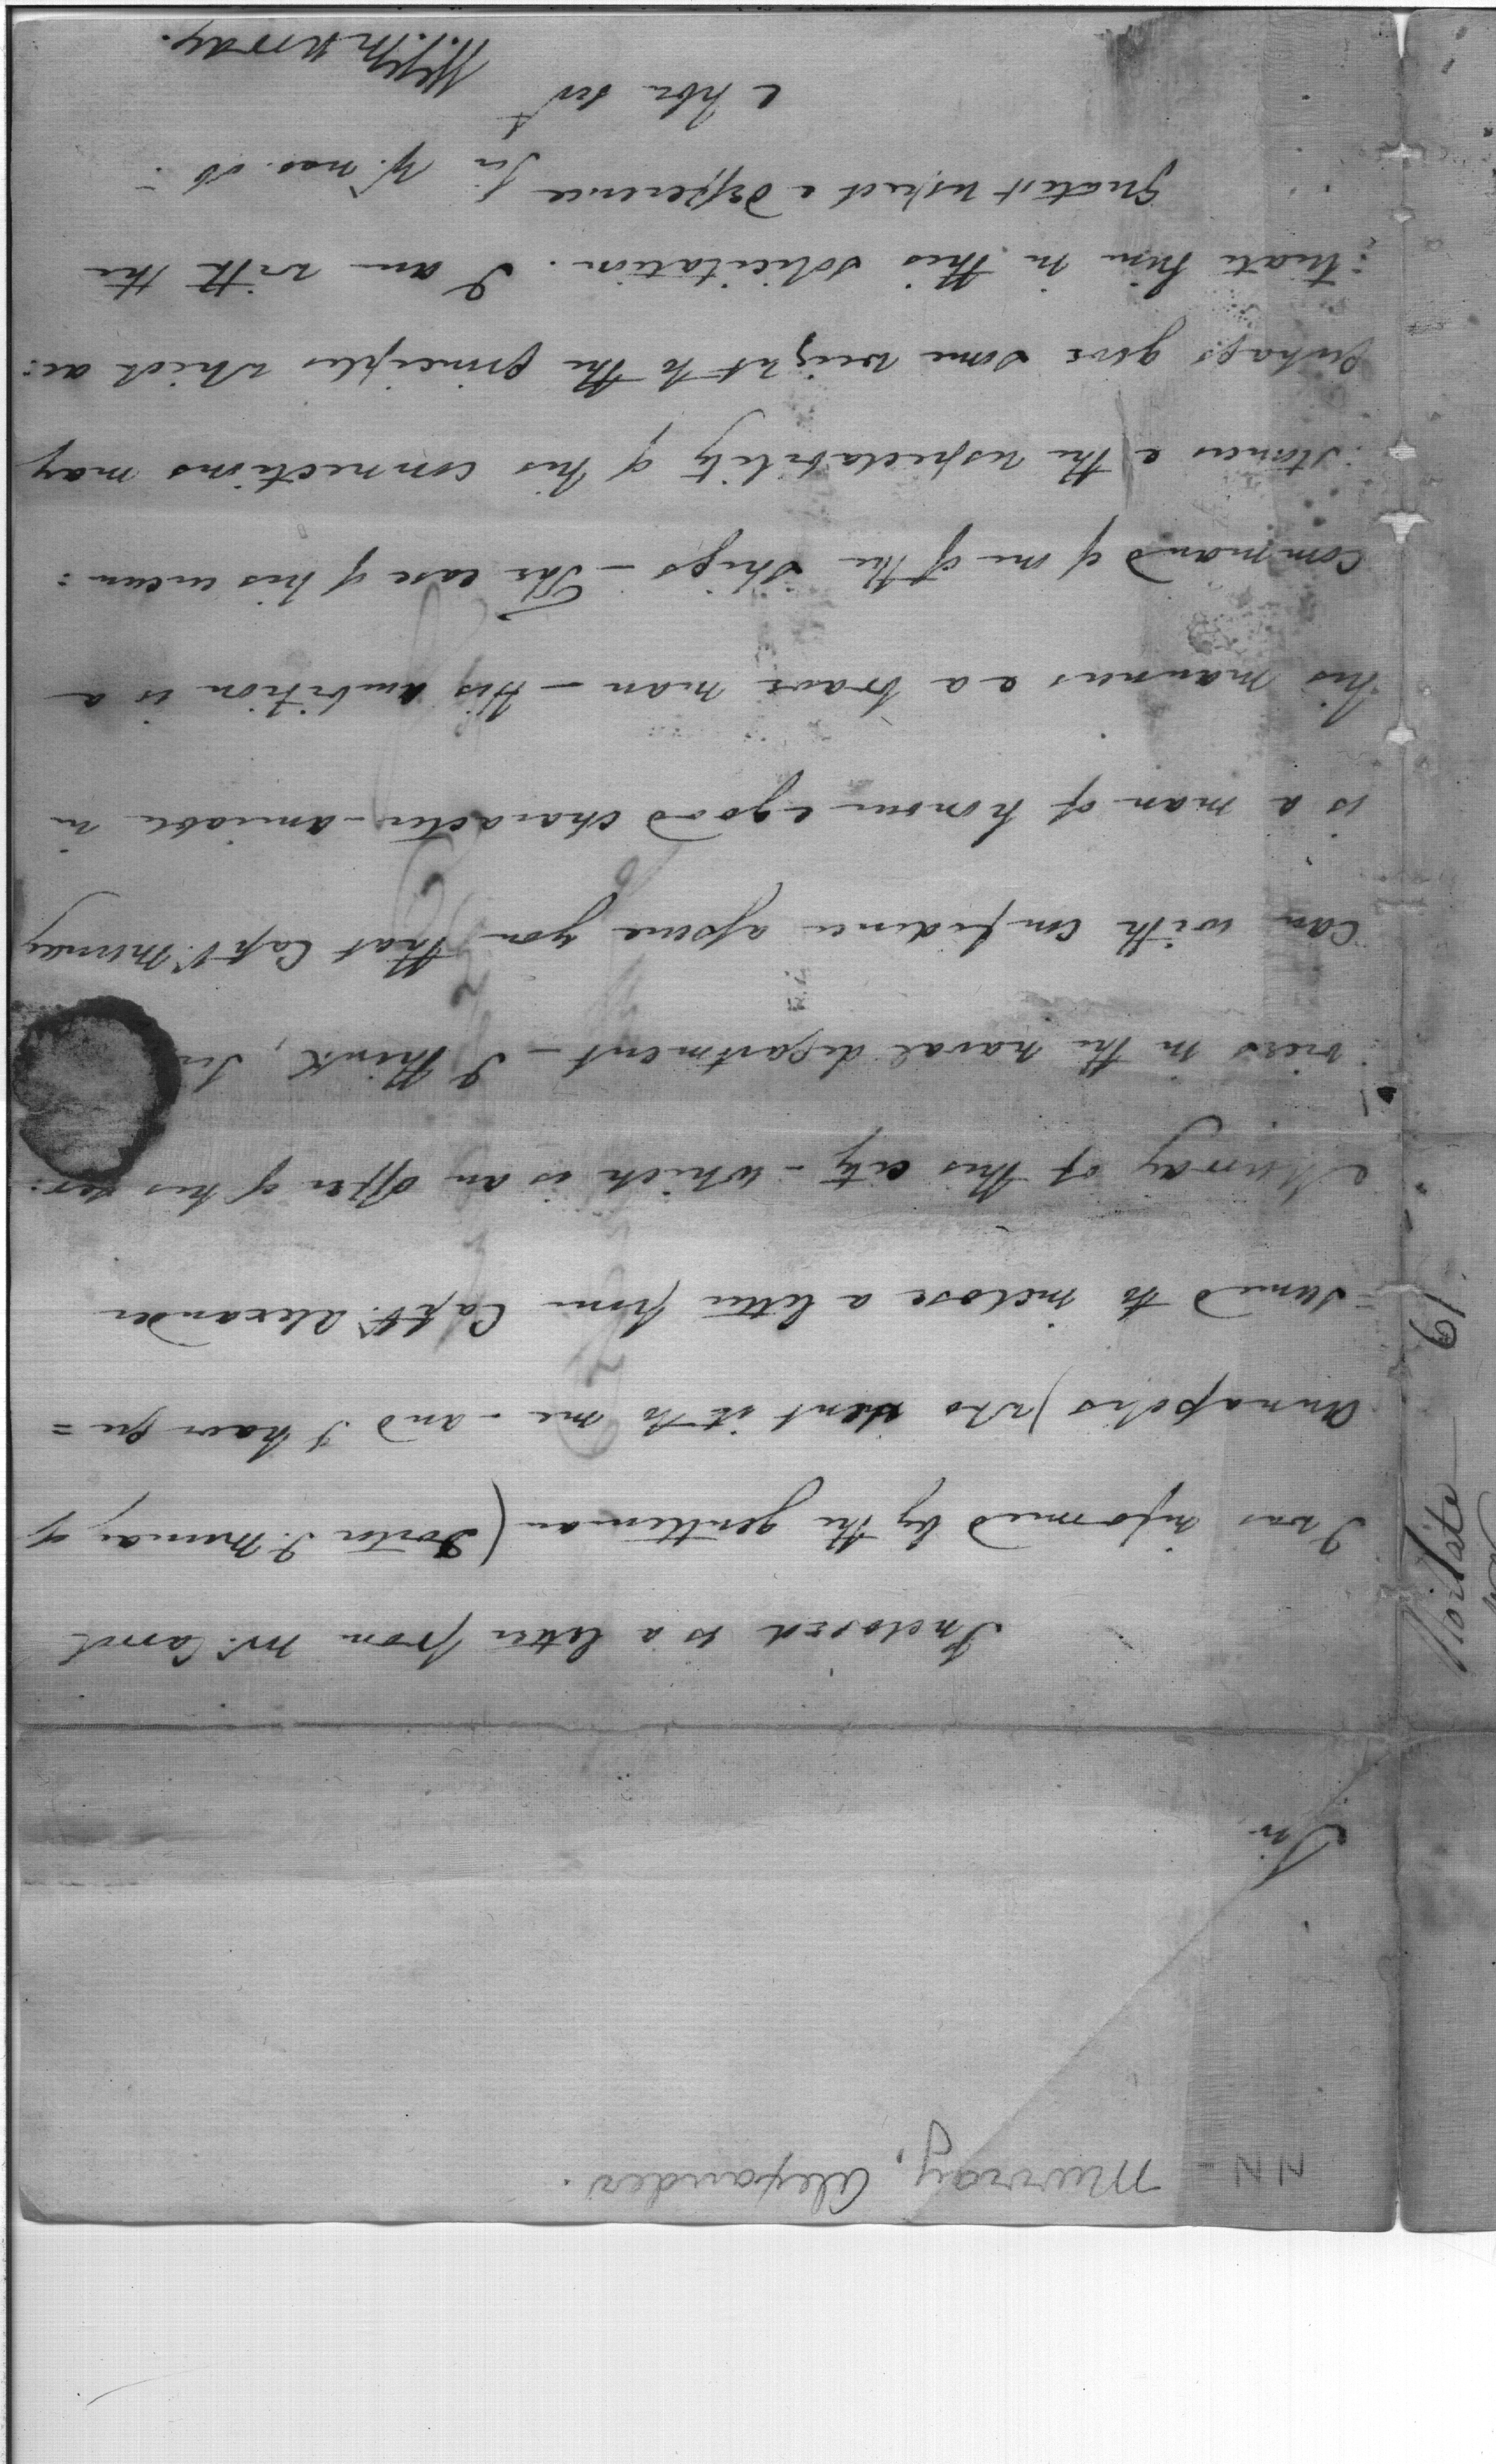 NN - Murray, Alexander.
Sir,
Inclosed is a letter from Mr. Carrol
I was informed by the gentleman (Doctor J. Murray of
Annapolis) who sent it to me - and I have pre=
=sumed to inclose a letter from Capt. Alexander
Murray of this city - which is an offer of his ser:
:vices in the naval department - I think, Sir
can with confidence assure you that Capt. Murray
is a man of honour & good character - amiable in
his manners & a brave man - His ambition is a
command of one of the ships - The ease of his circum:
:stances & the respectability of his connections may
perhaps give some weight to the principles which ac:
:tuate him in this solicitation. I am with the
greatest respect & defference Sir yr. mos. ob -
& hble svt
W. V. Murray.
19